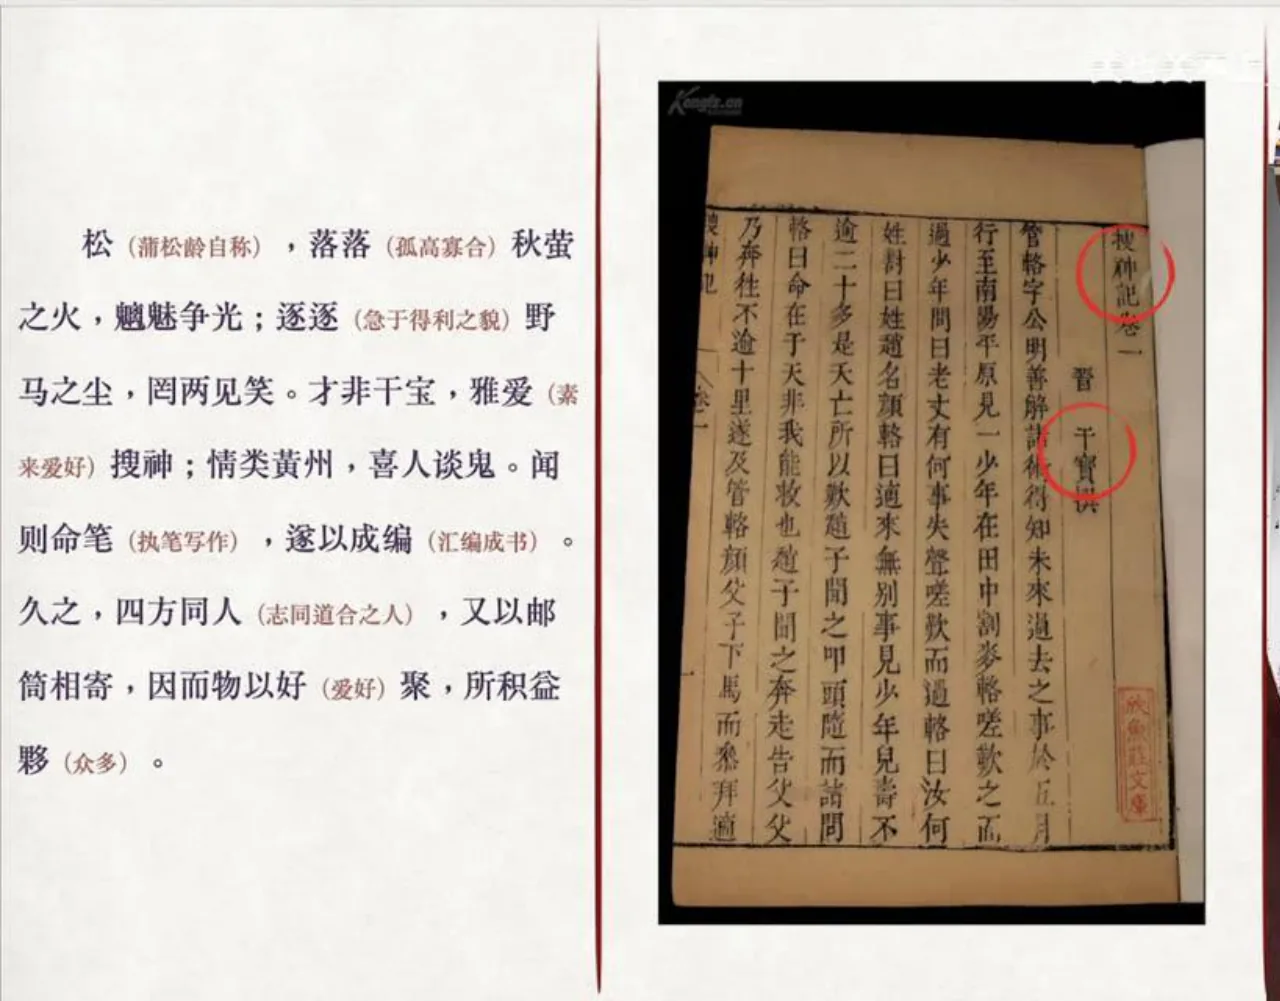 松（蒲松龄自称），落落（孤高寡合）秋萤
之火，魑魅争光；逐逐（急于得利之貌）野
马之尘，罔两见笑。才非干宝，雅爱（素
来爱好）搜神；情类黄州，喜人谈鬼。闻
则命笔（执笔写作），遂以成编（汇编成书）。
久之，四方同人（志同道合之人），又以邮
筒相寄，因而物以好（爱好）聚，所积益
夥（众多）。
Kongfz.cn
搜神記卷一
晉
干寶撰
管輅字公明善解諸術得知未來過去之事於五月
行至南陽平原見一少年在田中割麥輅嗟歎之而
過少年問曰老丈有何事失聲嗟歎而過輅曰汝何
姓對曰姓趙名顔輅曰適來無別事見少年兒壽不
逾二十多是夭亡所以歎趙子聞之叩頭隨而諸問
輅曰命在于天非我能救也趙子聞之奔走告父父
乃奔往不逾十里遂及管輅顔父子下馬而叅拜適
欣魚莊文庫